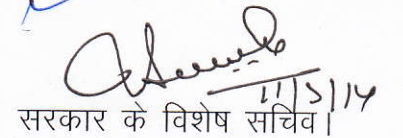 11/5/14
सरकार के विशेष सचिव।